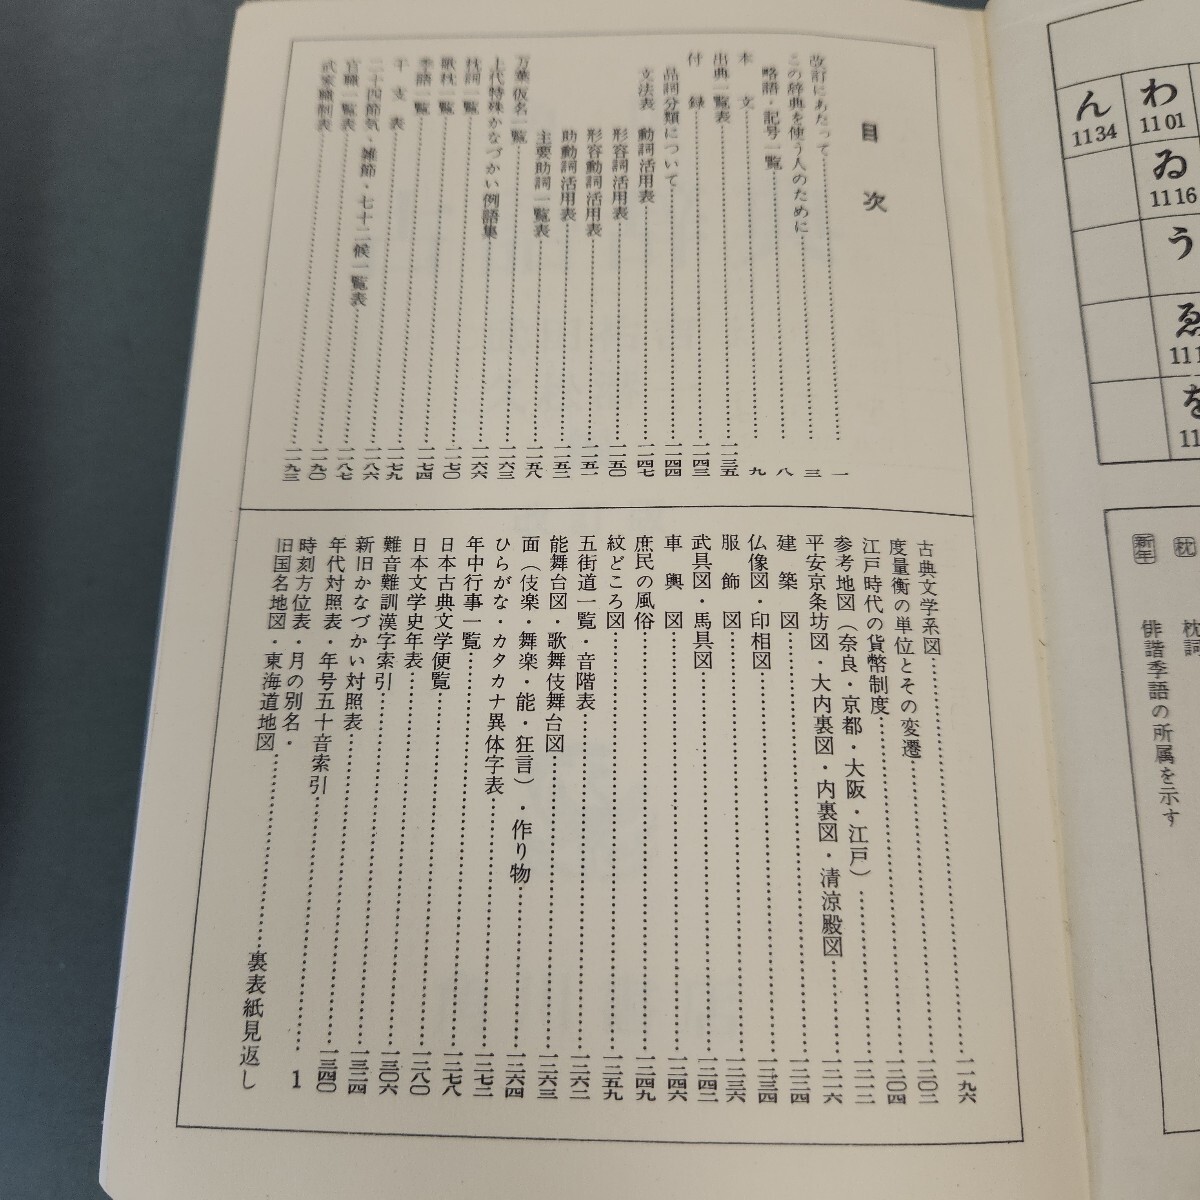 わ 1101
ゐ 1116
う
ゑ 111
を 11
ん 1134
枕 枕詞
新年 俳諧季語の所属を示す
目次
改訂にあたって……一
この辞典を使う人のために……三
略語・記号一覧……八
本文……九
出典一覧表……一一三五
付録……一一四三
品詞分類について……一一四四
文法表 動詞活用表……一一四七
形容詞活用表……一一五〇
形容動詞活用表……一一五一
助動詞活用表……一一五二
主要助詞一覧表……一一五八
万葉仮名一覧……一一六三
上代特殊かなづかい例語集……一一六六
枕詞一覧……一一七〇
歌枕一覧……一一七四
季語一覧……一一七九
干支表……一一八六
二十四節気・雑節・七十二候一覧表……一一八七
官職一覧表……一一九〇
武家職制表……一一九三
古典文学系図……一一九六
度量衡の単位とその変遷……一二〇二
江戸時代の貨幣制度……一二〇四
参考地図（奈良・京都・大阪・江戸）……一二一二
平安京条坊図・大内裏図・内裏図・清涼殿図……一二一六
建築図……一二二四
仏像図・印相図……一二三四
服飾図……一二三六
武具図・馬具図……一二四二
車輿図……一二四六
庶民の風俗……一二四九
紋どころ図……一二五九
五街道一覧・音階表……一二六二
能舞台図・歌舞伎舞台図……一二六三
面（伎楽・舞楽・能・狂言）・作り物……一二六四
ひらがな・カタカナ異体字表……一二七二
年中行事一覧……一二七八
日本古典文学便覧……一二八〇
日本文学史年表……一三〇六
難音難訓漢字索引……一三二四
新旧かなづかい対照表……一三四〇
年代対照表・年号五十音索引……1
時刻方位表・月の別名・
旧国名地図・東海道地図……裏表紙見返し